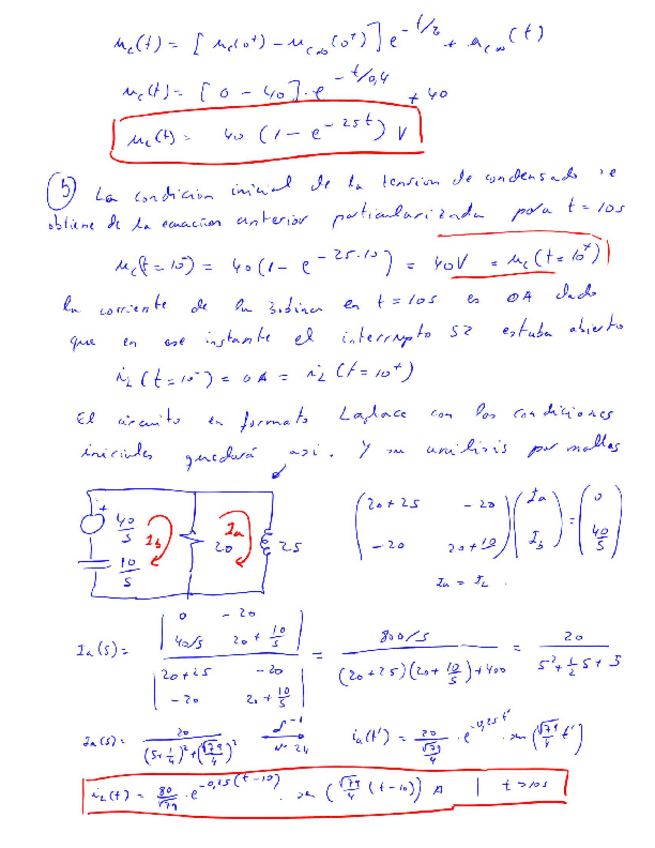 u_c(t) = [ u_c(0⁺) - u_c∞(0⁺) ] e^{-t/τ} + u_c∞(t)
u_c(t) = [ 0 - 40 ] · e^{-t/0,4} + 40
u_c(t) = 40 (1 - e^{-2.5t}) V
5) La condicion inicial de la tension de condensado se
obtiene de la ecuacion anterior particularizada para t = 10s
u_c(t = 10⁻) = 40 (1 - e^{-25·10}) = 40V = u_c(t = 10⁺)
la corriente de la bobina en t = 10s es 0A dado
que en ese instante el interrupto S2 estaba abierto
i_L (t = 10⁻) = 0A = i_L (t = 10⁺)
El circuito en formato Laplace con las condiciones
iniciales quedará así. Y su analisis por mallas
+ 40/S 10/S I_b 20 I_a 2S
( 20+2S -20 ; -20 20+10/S ) ( I_a ; I_b ) = ( 0 ; 40/S )
I_a = I_L .
I_a(S) = | 0 -20 ; 40/S 20+10/S | / | 20+2S -20 ; -20 20+10/S | = 800/S / (20+2S)(20+10/S)+400 = 20 / S²+½S+5
I_a(S) = 20 / (S+¼)²+(√79/4)² ℒ⁻¹ Nº 24 i_a(t') = 20/(√79/4) · e^{-0,25t'} · sen (√79/4 t')
i_L(t) = 80/√79 · e^{-0,25(t-10)} · sen (√79/4 (t-10)) A | t>10s